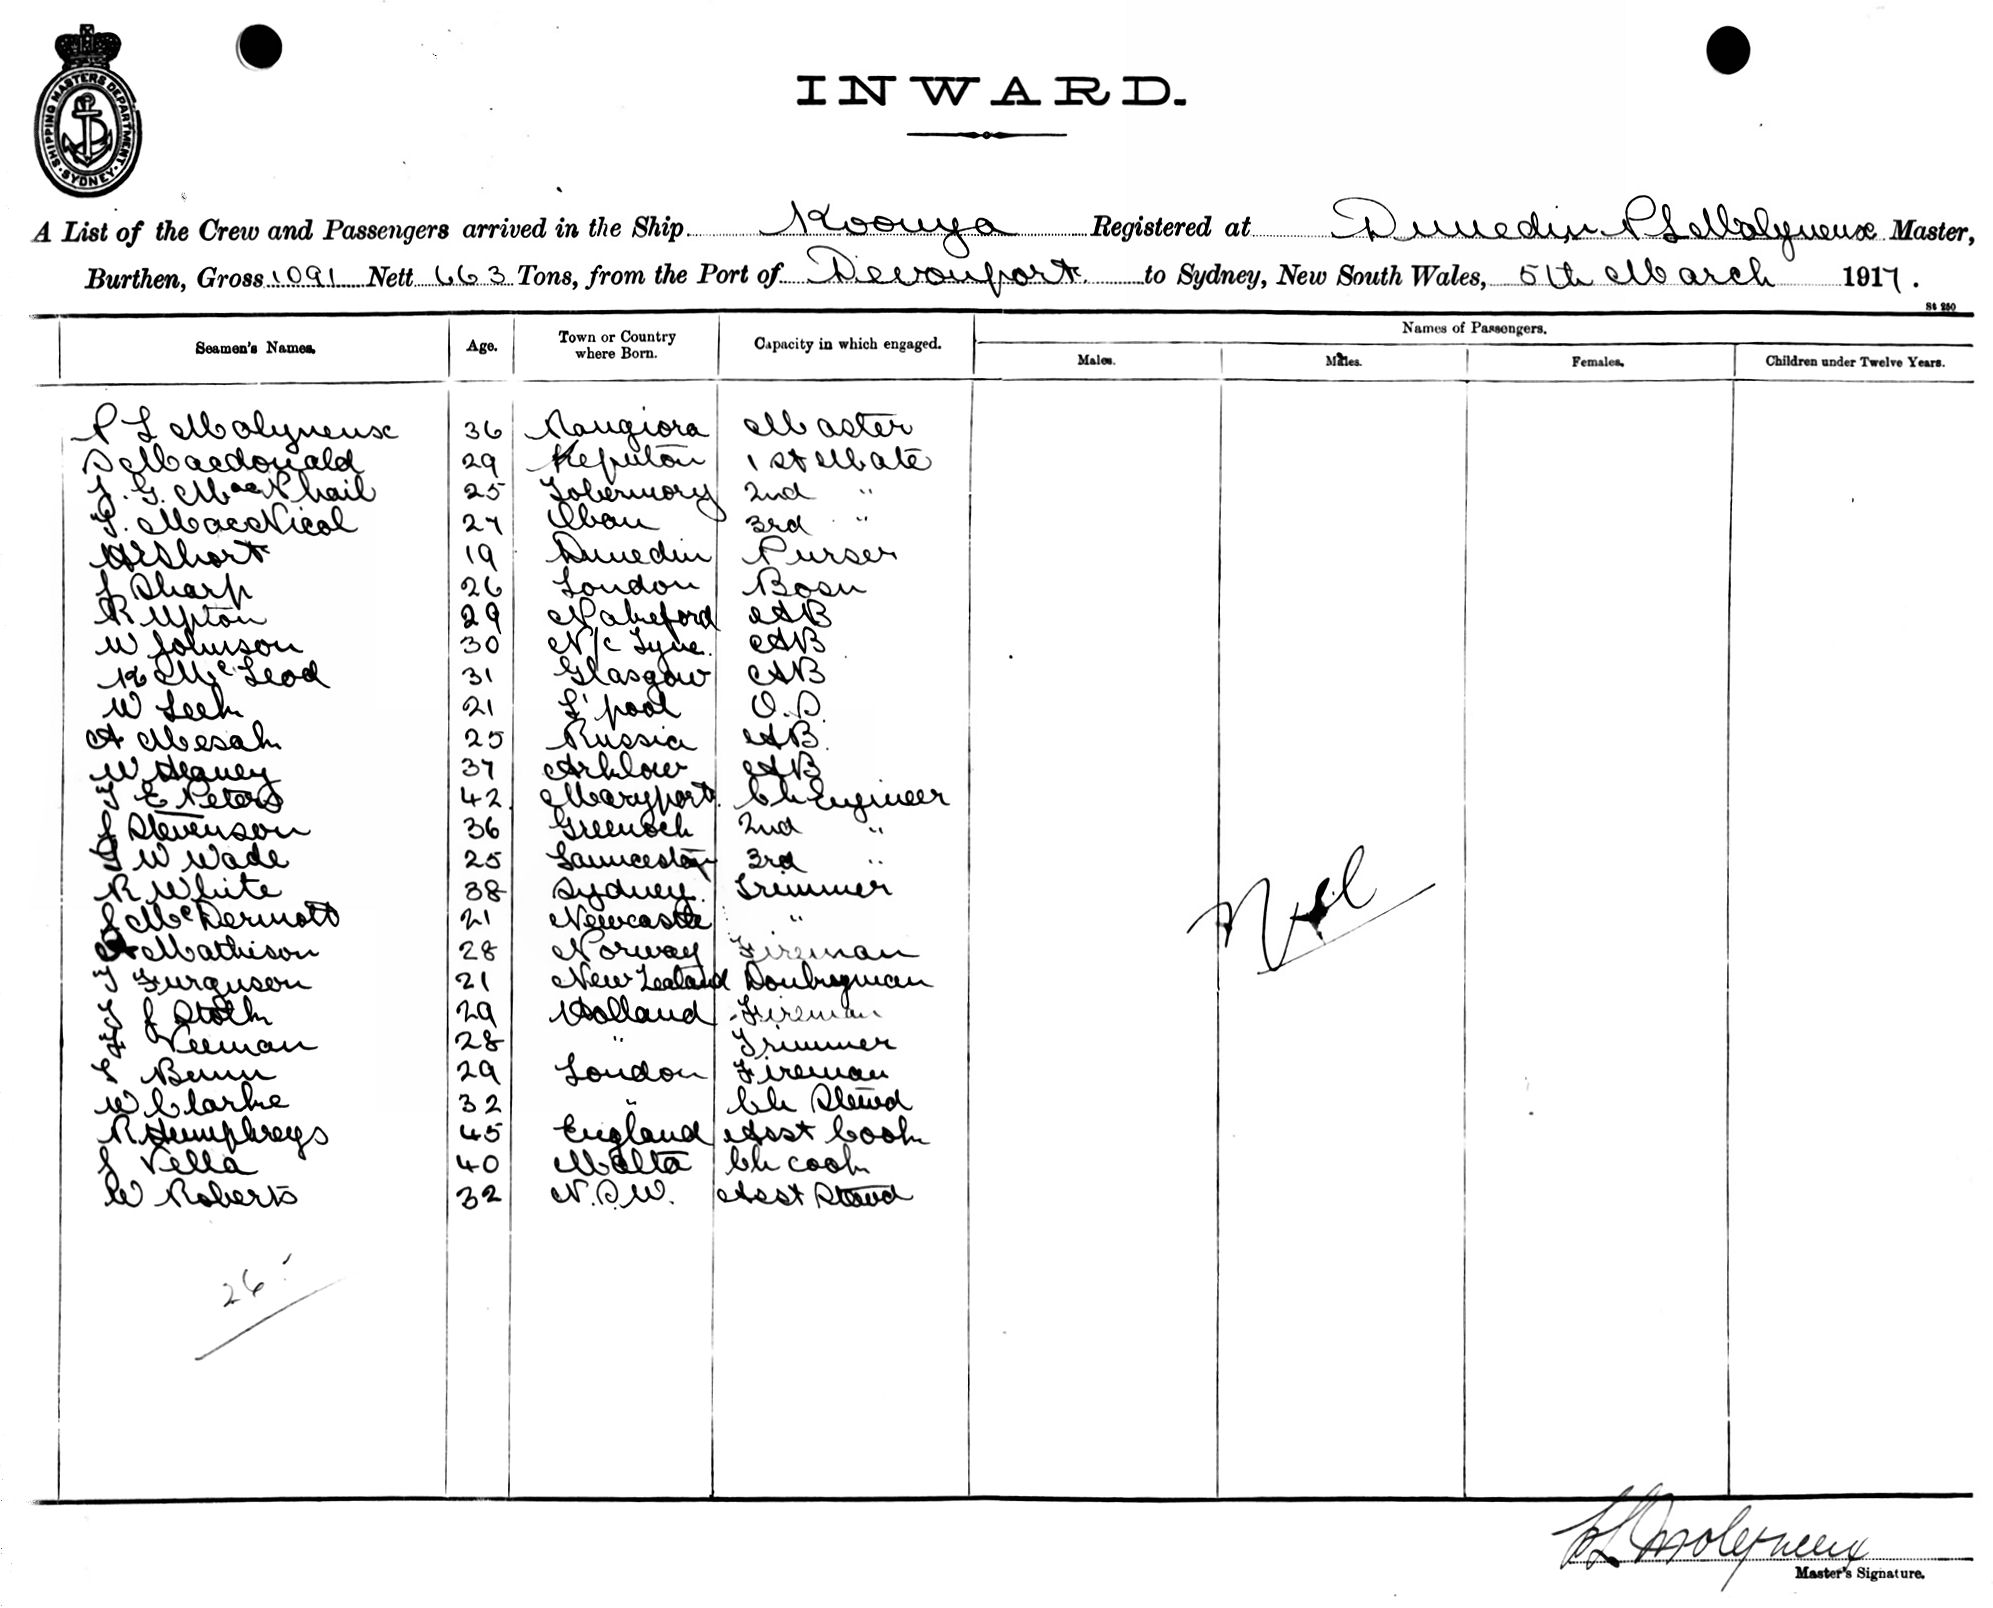 SHIPPING MASTERS DEPARTMENT · SYDNEY ·
INWARD.
A List of the Crew and Passengers arrived in the Ship Koonya Registered at Dunedin P L Molyneux Master,
Burthen, Gross 1091 Nett 663 Tons, from the Port of Devonport to Sydney, New South Wales, 5th March 1917.
St 250
Seamen's Names. Age. Town or Country where Born. Capacity in which engaged. Names of Passengers.
Males. Males. Females. Children under Twelve Years.
P L Molyneux 36 Rangiora Master
D Macdonald 29 1st Mate
J. G. MacPhail 25 Tobermory 2nd "
T. MacNicol 27 Oban 3rd "
Short 19 Dunedin Purser
J Sharp 26 London Bosn
R Upton 29 AB
W Johnson 30 N/c Tyne. AB
K McLeod 31 Glasgow AB
W Leek 21 L'pool O.S.
A Mesak 25 Russia AB.
W Heaney 37 Arklow AB
T E Peters 42 Maryport Ch Engineer
J Stevenson 36 Greenock 2nd "
T W Wade 25 Launceston 3rd "
R White 38 Sydney. Trimmer
J McDermott 21 Newcastle "
A Mathison 28 Norway Fireman
T Ferguson 21 New Zealand Donkeyman
T J Stolk 29 Holland Fireman
Veeman 28 " Trimmer
Bunn 29 London Fireman
W Clarke 32 " Ch Stewd
R Humphreys 45 England Asst Cook
J Vella 40 Malta Ch cook
W Roberts 32 N.S.W. Asst Stewd
Nil
26
P L Molyneux
Master's Signature.